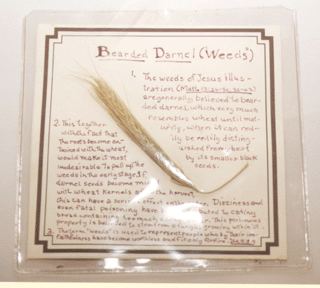 Bearded Darnel (Weeds)
1. The weeds of Jesus' illus-
tration (Matt 13:24-30, 36-43)
are generally believed to be bear-
ded darnel, which very much
resembles wheat until mat-
urity, when it can read-
ily be
distin-
guished from wheat
by its smaller black
seeds.
2. This together
with the fact that
the roots become en-
twined with the wheat,
would make it most
undesirable to pull up the
weeds in the early stages. If
darnel seeds become mixed
with wheat kernels after the harvest,
this can have a serious effect
Dizziness and
even fatal poisoning have been attributed to eating
bread containing too much
This poisonous
property is believed to stem from a fungus growing within it.
3. The term "weeds" is used to represent people who by their
have become worthless and